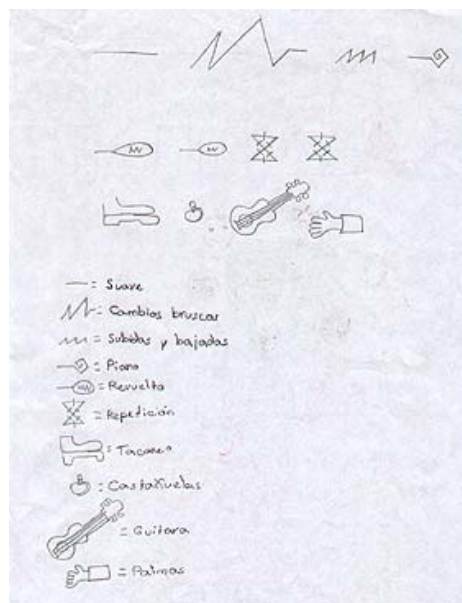 = Suave
= Cambios bruscos
= Subidas y bajadas
= Piano
= Revuelto
= Repetición
= Taconeo
= Castañuelas
= Guitara
= Palmas